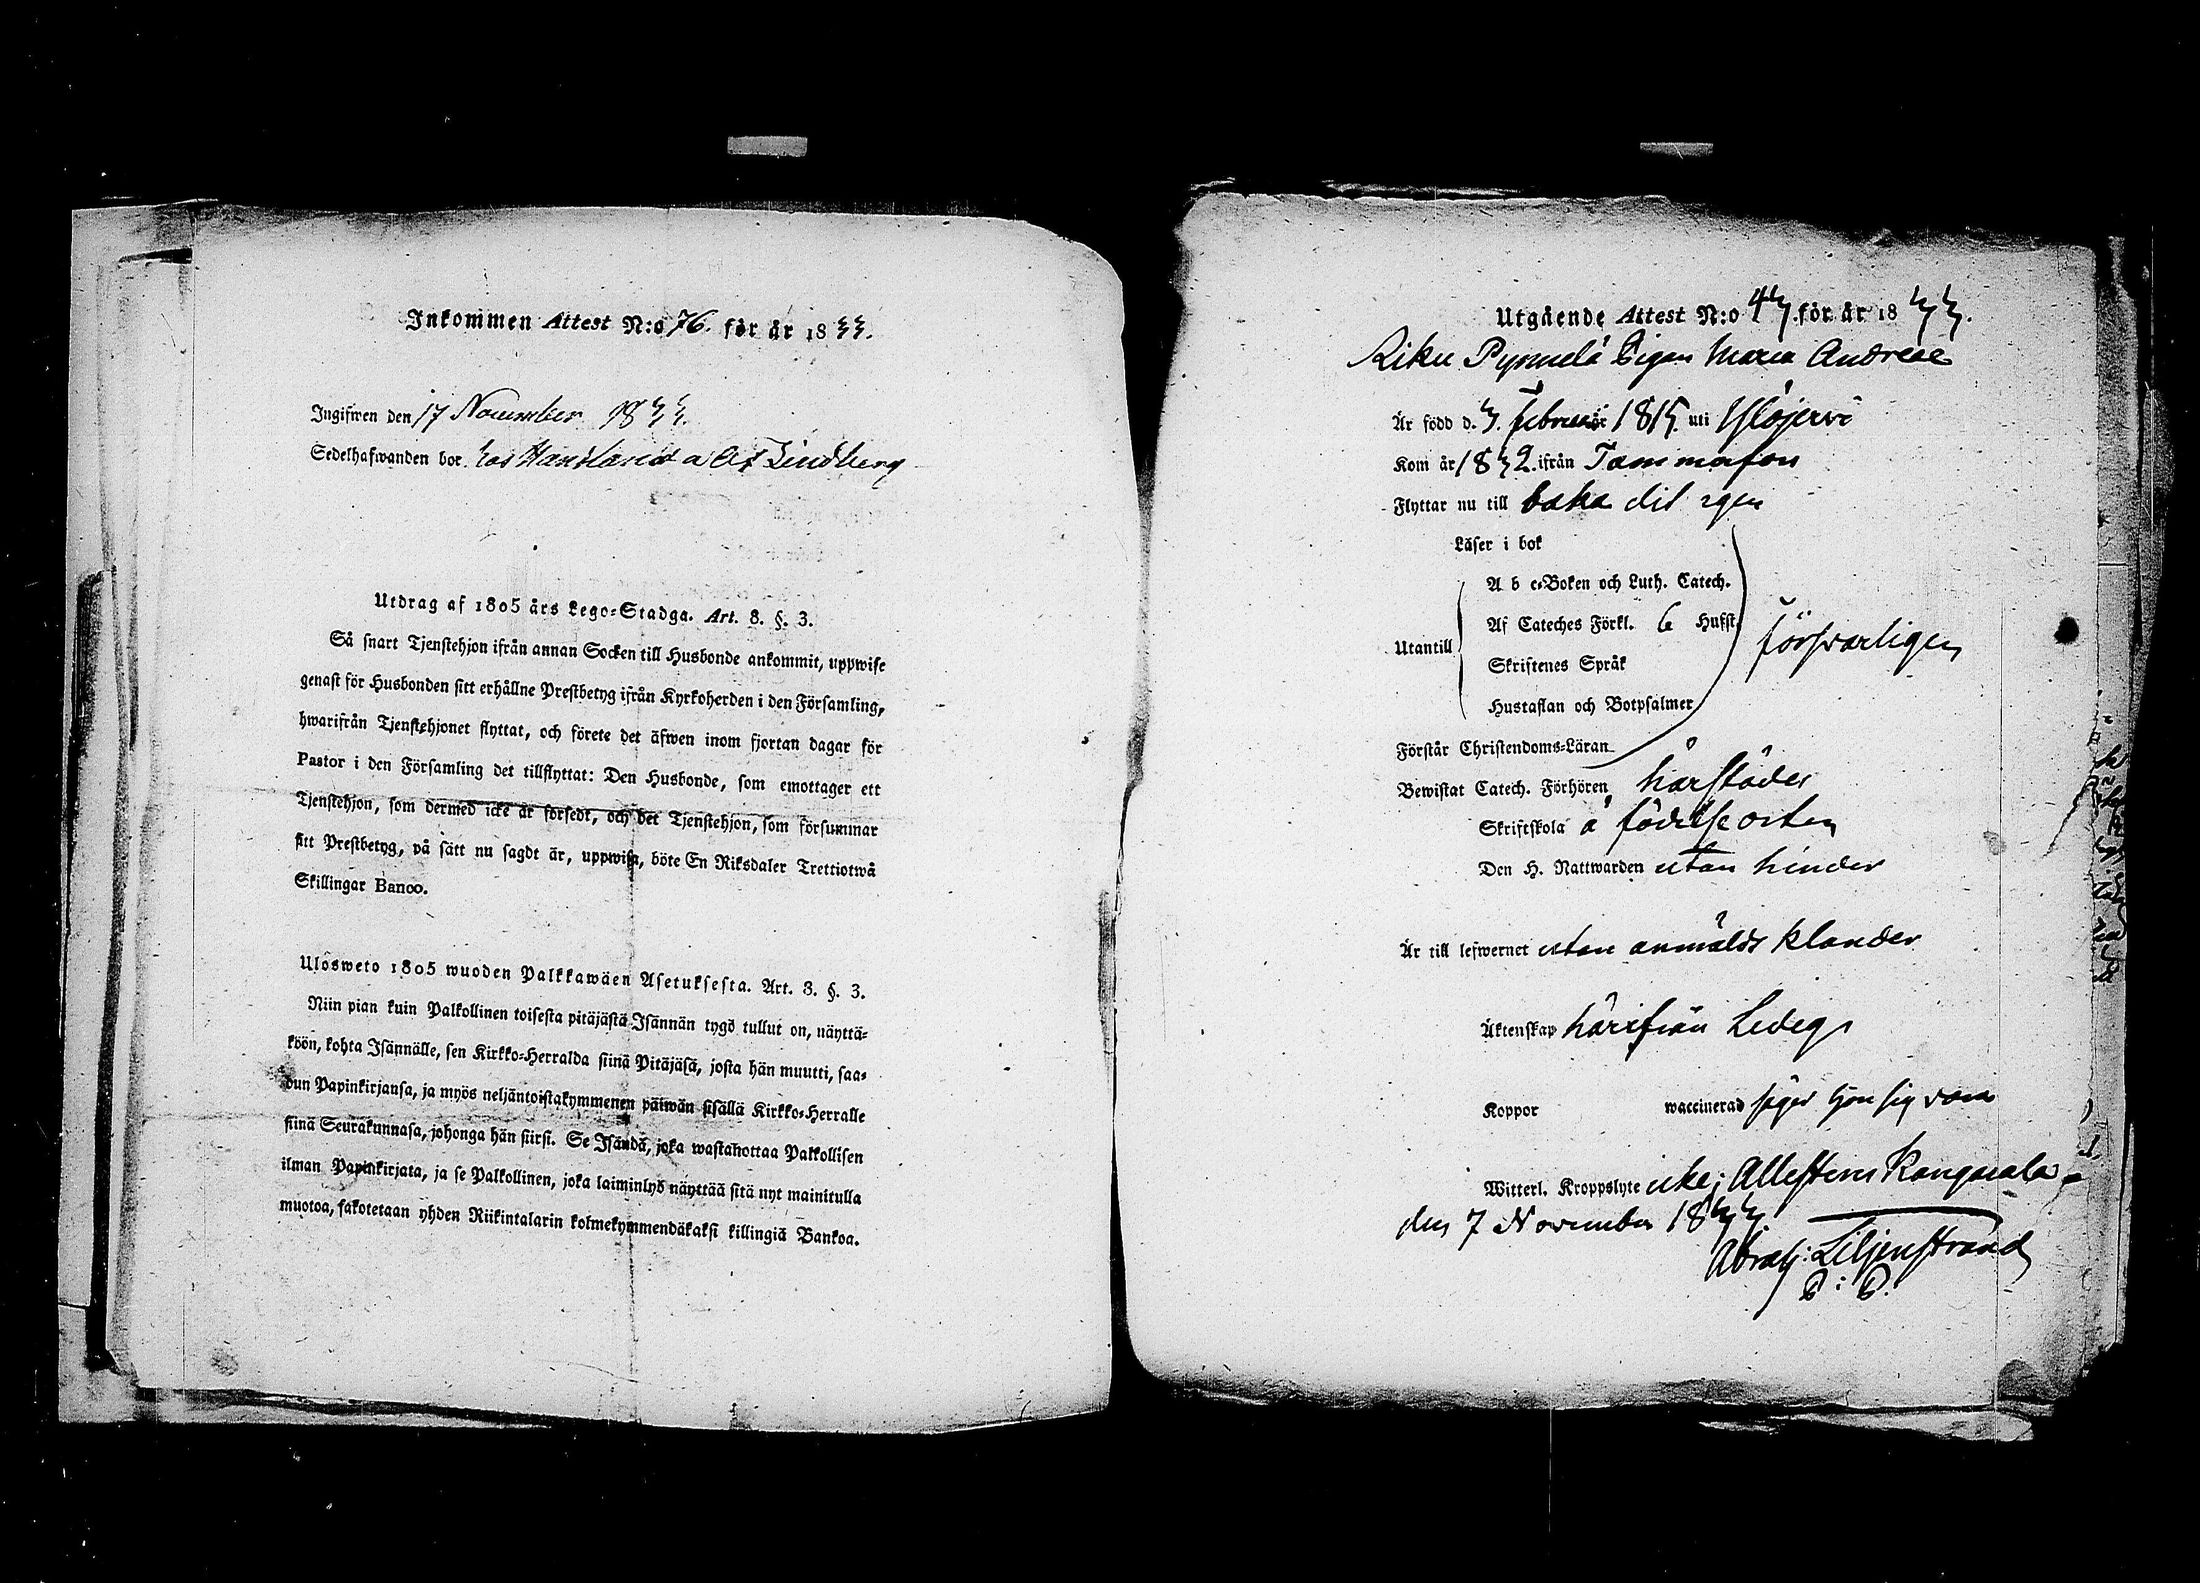 Inkommen Attest N:o 76. för år 1833.
Ingifwen den 17 November 1833.
Sedelhafwanden bor hos Handland Lindberg
Utdrag af 1805 års Lego-Stadga. Art. 8. §. 3.
Så snart Tjenstehjon ifrån annan Socken till Husbonde ankommit, uppwise
genast för Husbonden sitt erhållne Prestbetyg ifrån Kyrkoherden i den Församling,
hwarifrån Tjenstehjonet flyttat, och förete det äfwen inom fjortan dagar för
Pastor i den Församling det tillflyttat: Den Husbonde, som emottager ett
Tjenstehjon, som dermed icke är försedt, och det Tjenstehjon, som försummar
sitt Prestbetyg, på sätt nu sagdt är, uppwisa, böte En Riksdaler Trettiotwå
Skillingar Banco.
Ulosweto 1805 wuoden Palkkawäen Asetuksesta. Art. 8. §. 3.
Niin pian kuin Palkollinen toisesta pitäjästä Isännän tygö tullut on, näyttä-
köön, kohta Isännälle, sen Kirkko-Herralda siinä Pitäjäsä, josta hän muutti, saa-
dun Papinkirjansa, ja myös neljäntoistakymmenen päiwän sisällä Kirkko-Herralle
siinä Seurakunnasa, johonga hän siirsi. Se Isändä, joka wastanottaa Palkollisen
ilman Papinkirjata, ja se Palkollinen, joka laiminlyö näyttää sitä nyt mainitulla
muotoa, sakotetaan yhden Riikintalarin kolmekymmendäkaksi killingiä Bankoa.
Utgående Attest N:o 43. för år 1833.
Riku Pynnelä Pigan Maria Andreae
Är född d. 3. Februari 1815. uti Ylöjervi
Kom år 1832. ifrån Tammerfors
Flyttar nu till baka dit igen
Läser i bok
A b c-Boken och Luth. Catech.
Af Cateches Förkl. 6 Hufst.
Utantill
Skriftenes Språk
försvarligen
Hustaflan och Botpsalmer
Förstår Christendoms-Läran
Bewistat Catech. Förhören härstädes
Skriftskola å födelse orten
Den H. Nattwarden utan hinder
Är till lefwernet utan anmäldt klander
Äktenskap härifrån Ledig
Koppor waccinerad säger hon sig vara
Witterl. Kroppslyte icke; Attesteras Kangasala
den 7 November 1833.
Abrah: Liljenstrand